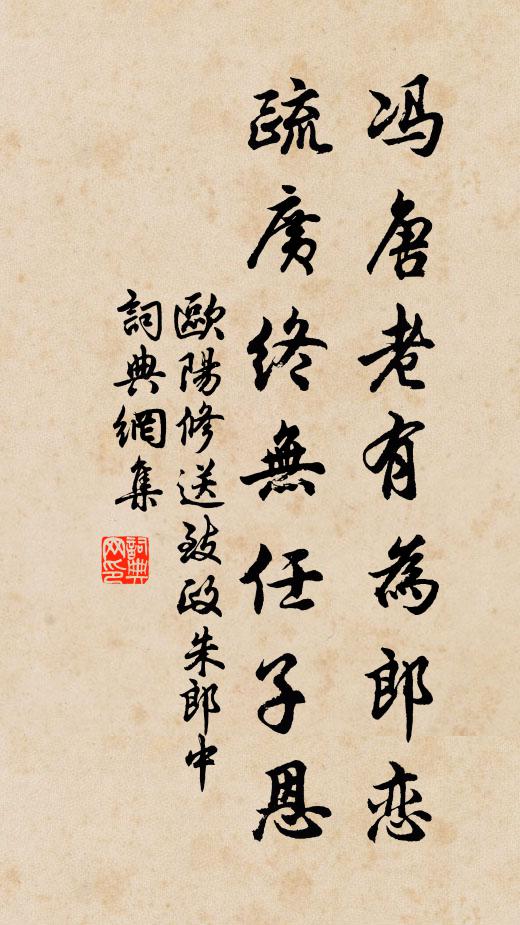 冯唐老有为郎恋
疏广终無任子恩
歐陽修送致政朱郎中
詞典網集
詞典网印